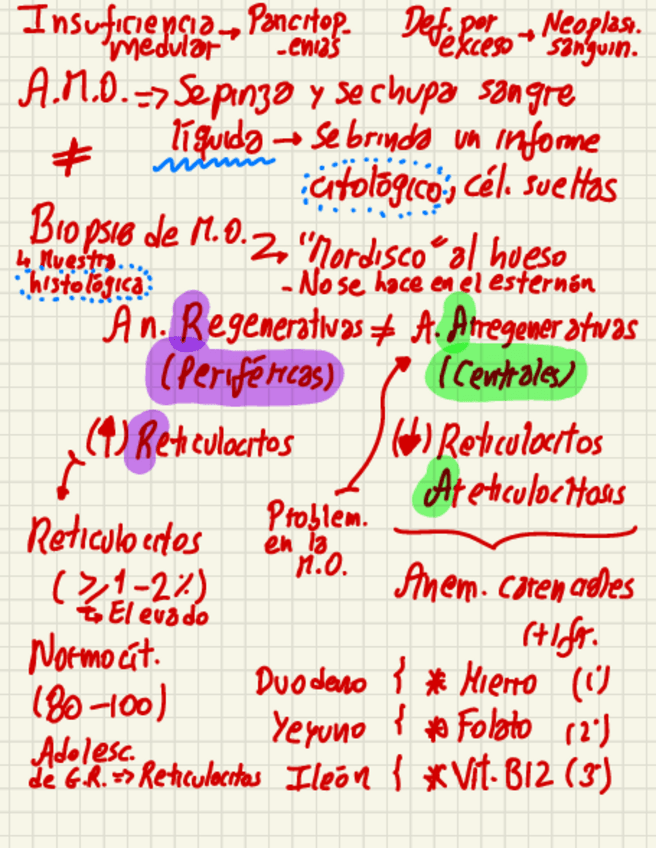 Insuficiencia medular → Pancitop-enias
Def. por exceso → Neoplasi. sanguin.
A.M.O. => Se pinza y se chupa sangre
líquida → se brinda un informe
≠
citológico, cél. sueltas
Biopsia de M.O. → "Mordisco" al hueso
↳ Muestra histológica
- No se hace en el esternón
An. Regenerativas ≠ A. Arregenerativas
(Periféricas) (Centrales)
(↑) Reticulocitos (↓) Reticulocitos
Areticulocitosis
Problem. en la M.O.
Reticulocitos
(≥ 1-2%)
↳ Elevado
Anem. carenciales
(+) fr.
Normocít.
(80-100)
Duodeno { * Hierro (1°)
Yeyuno { * Folato (2°)
Adolesc.
de G.R. => Reticulocitos
Ileón { * Vit. B12 (3°)